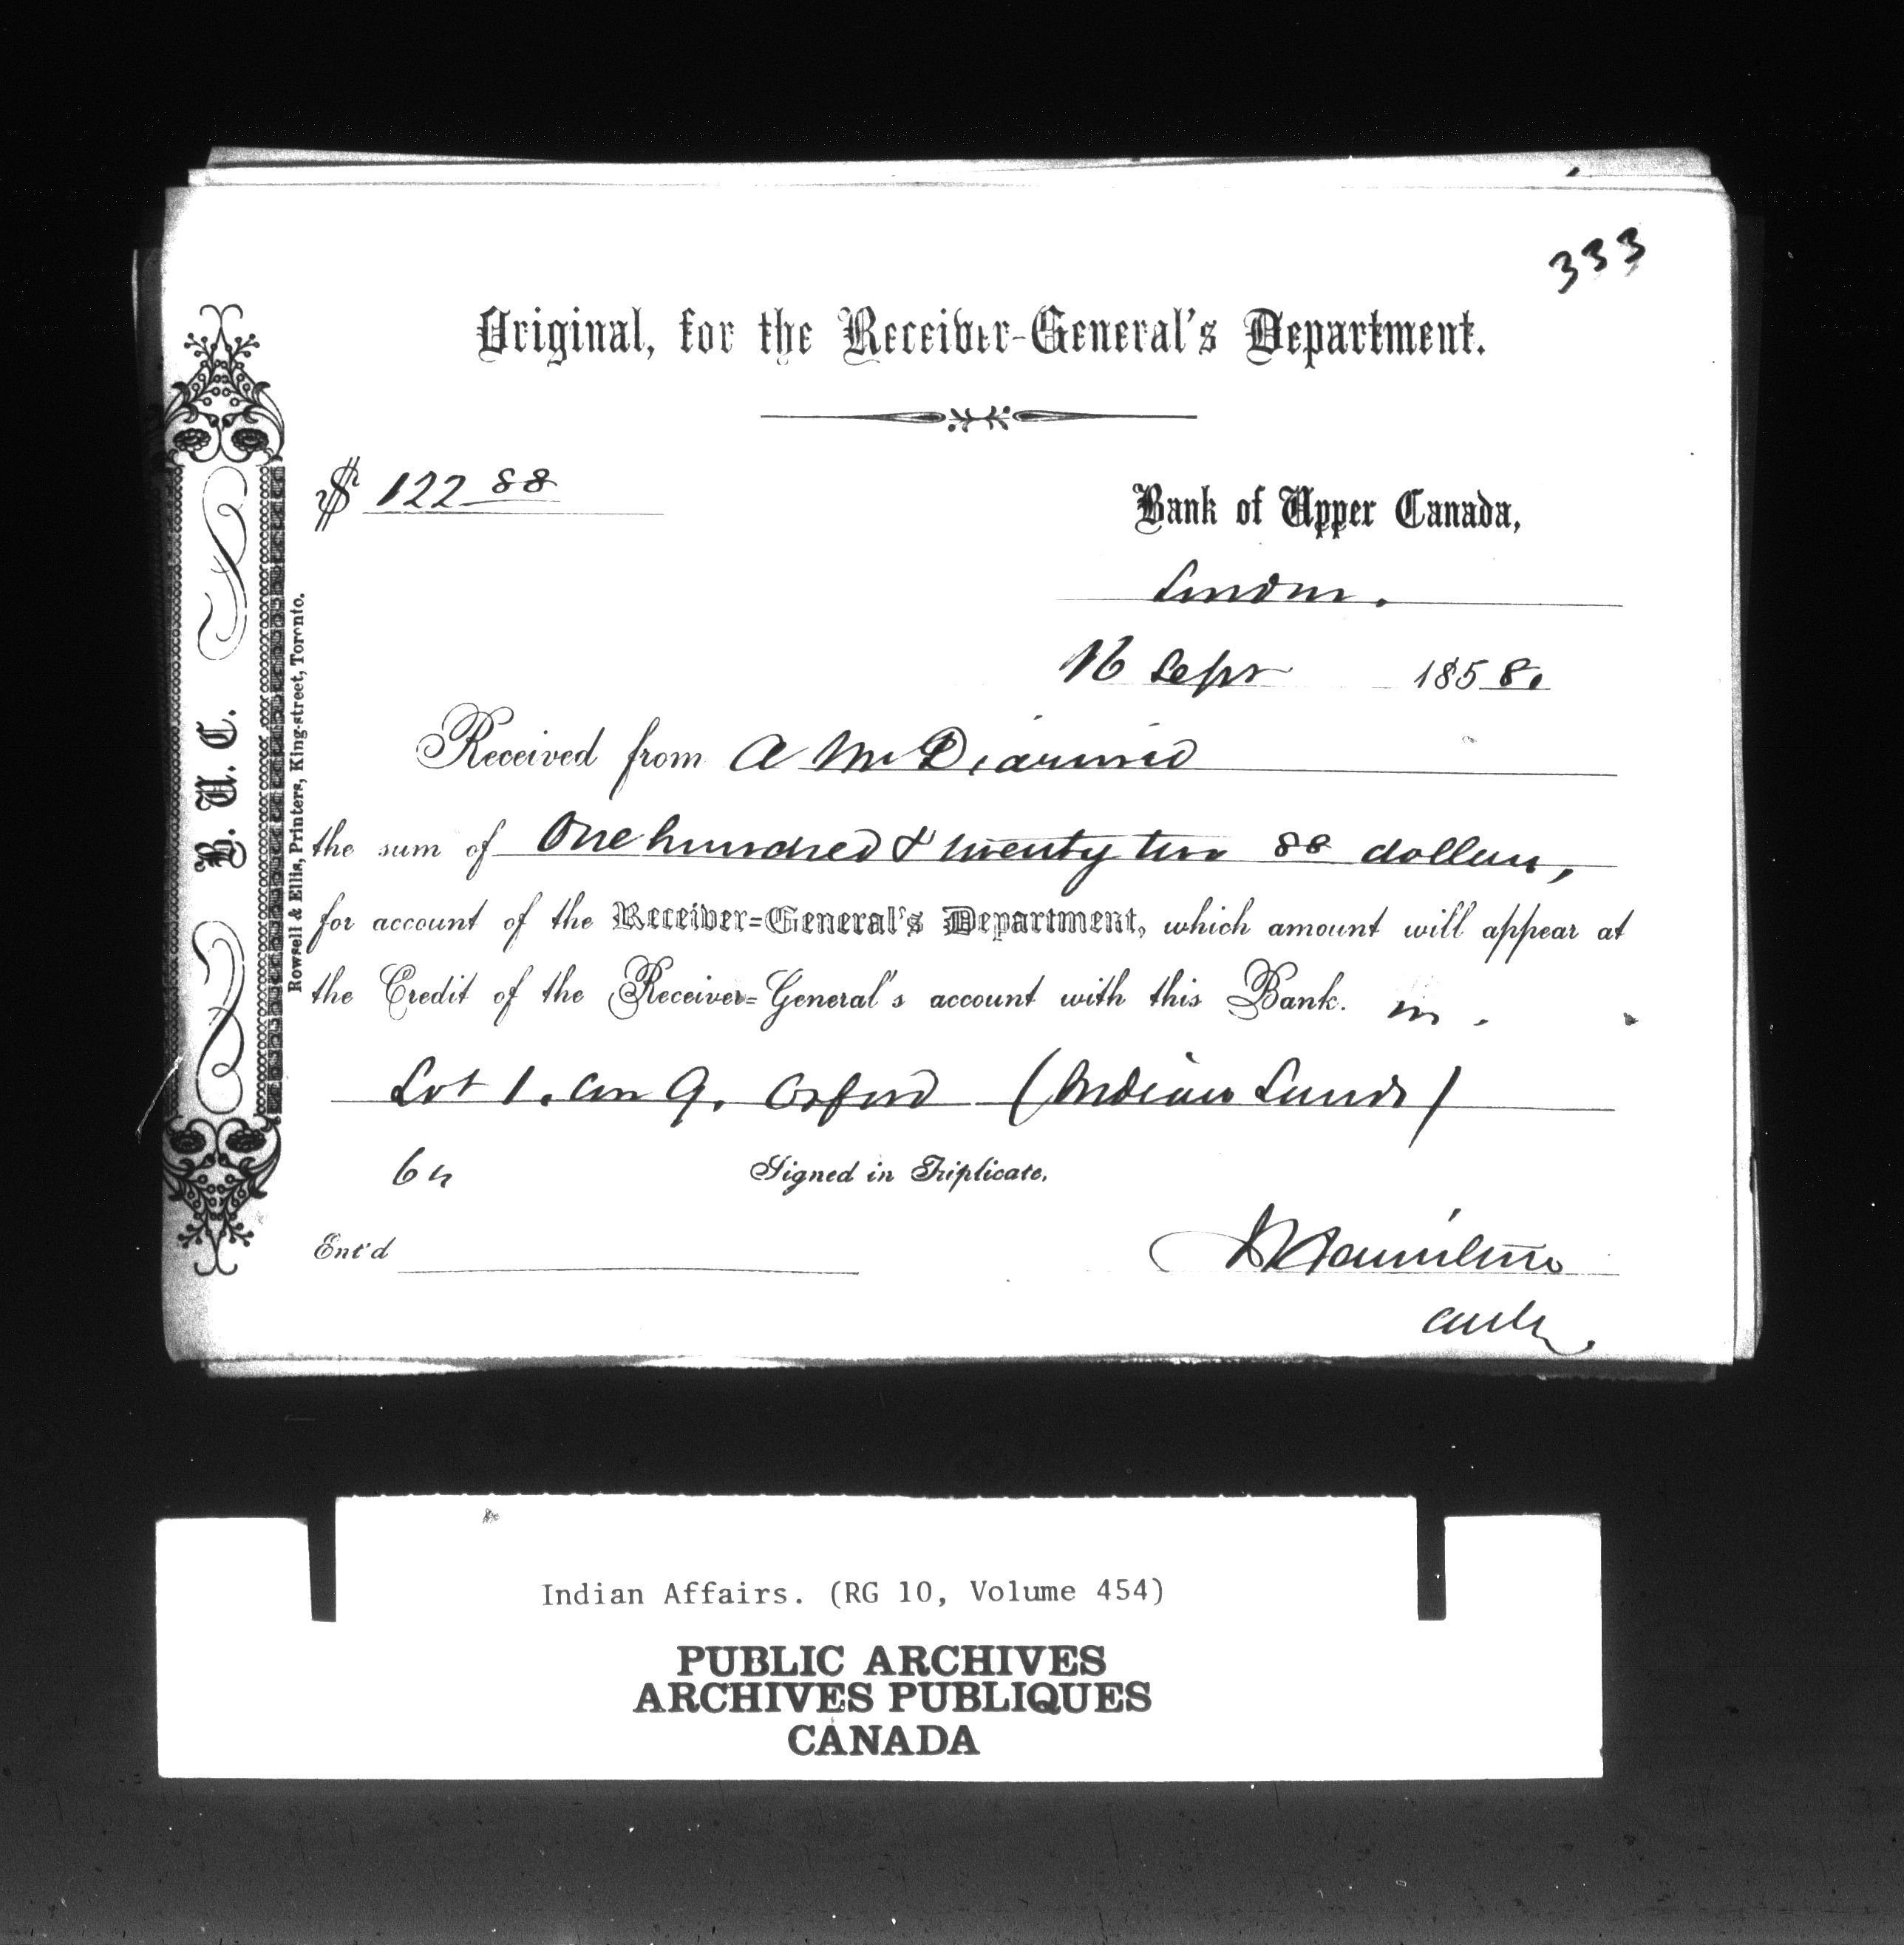 333
Original, for the Receiver-General's Department.
$ 122 88
Bank of Upper Canada,
London.
16 Sept 1858.
Received from A McDiarmid
the sum of One hundred & twenty two 88 dollars,
for account of the Receiver=General's Department, which amount will appear at
the Credit of the Receiver=General's account with this Bank. in.
Lot 1. Con 9. Orford (Indian Lands)
Signed in Triplicate.
Ent'd
Hamilton
B. U. C.
Rowsell & Ellis, Printers, King-street, Toronto.
Indian Affairs. (RG 10, Volume 454)
PUBLIC ARCHIVES
ARCHIVES PUBLIQUES
CANADA